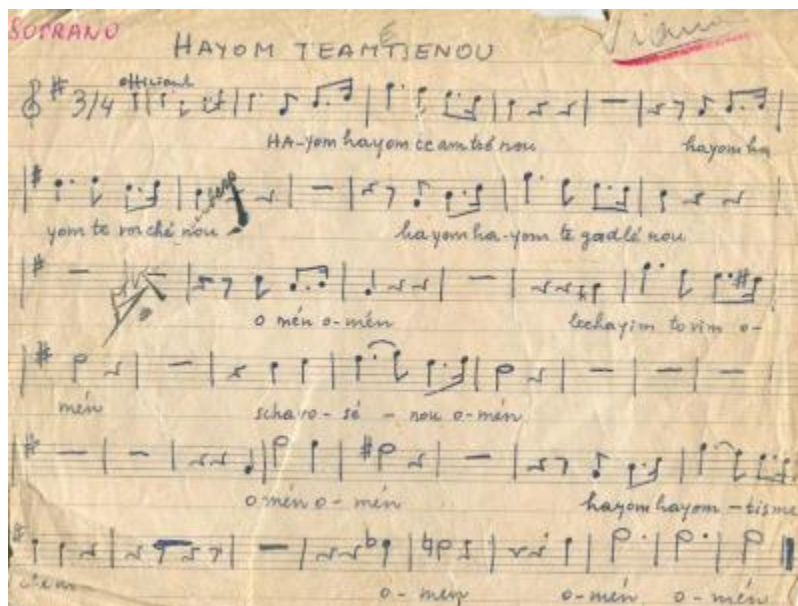 SOPRANO
HAYOM TEAMTSENOU
3/4 officiant
HA-yom hayom te amtsé nou hayom ha
yom te vorché nou
hayom ha-yom te gadlé nou
o mén o-mén lechayim tovim o-
mén scharo-sé - nou o-mén
o mén o-mén hayom hayom - tisme
o-men o-mén o-mén